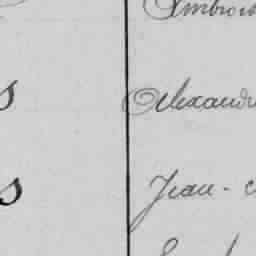 Ambrois
s Alexandr
s Jean-